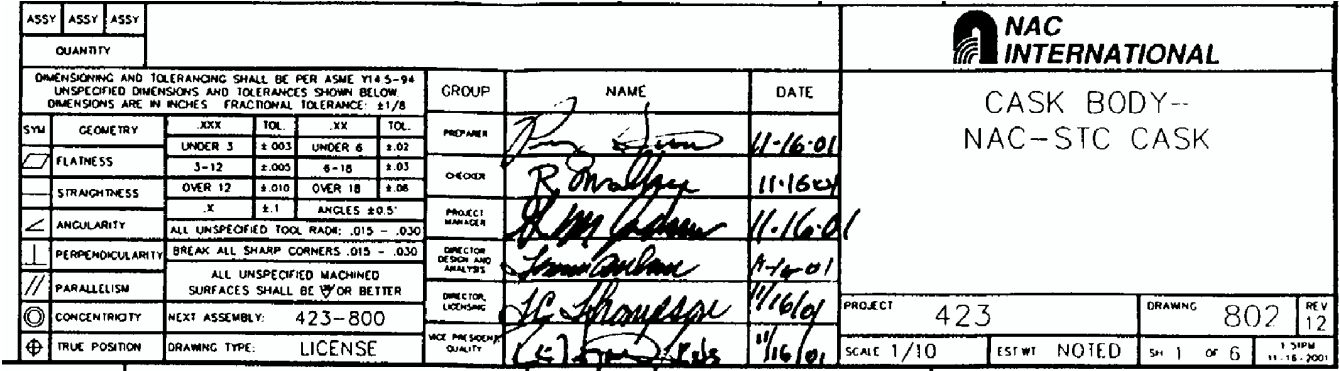 ASSY ASSY ASSY
QUANTITY
DIMENSIONING AND TOLERANCING SHALL BE PER ASME Y14.5-94
UNSPECIFIED DIMENSIONS AND TOLERANCES SHOWN BELOW.
DIMENSIONS ARE IN INCHES FRACTIONAL TOLERANCE: ±1/8
SYM GEOMETRY .XXX TOL. .XX TOL.
UNDER 3 ±.003 UNDER 6 ±.02
FLATNESS 3-12 ±.005 6-18 ±.03
STRAIGHTNESS OVER 12 ±.010 OVER 18 ±.06
.X ±.1 ANGLES ±0.5°
ANGULARITY ALL UNSPECIFIED TOOL RADII: .015 - .030
PERPENDICULARITY BREAK ALL SHARP CORNERS .015 - .030
PARALLELISM ALL UNSPECIFIED MACHINED
SURFACES SHALL BE OR BETTER
CONCENTRICITY NEXT ASSEMBLY: 423-800
TRUE POSITION DRAWING TYPE: LICENSE
GROUP NAME DATE
PREPARER 11-16-01
CHECKER 11-16-01
PROJECT
MANAGER 11-16-01
DIRECTOR
DESIGN AND
ANALYSIS
DIRECTOR,
LICENSING TC Thompson 11/16/01
VICE PRESIDENT
QUALITY 11/16/01
NAC
INTERNATIONAL
CASK BODY--
NAC-STC CASK
PROJECT 423 DRAWING 802 REV 12
SCALE 1/10 EST WT NOTED SH 1 OF 6 1:51PM
11-16-2001